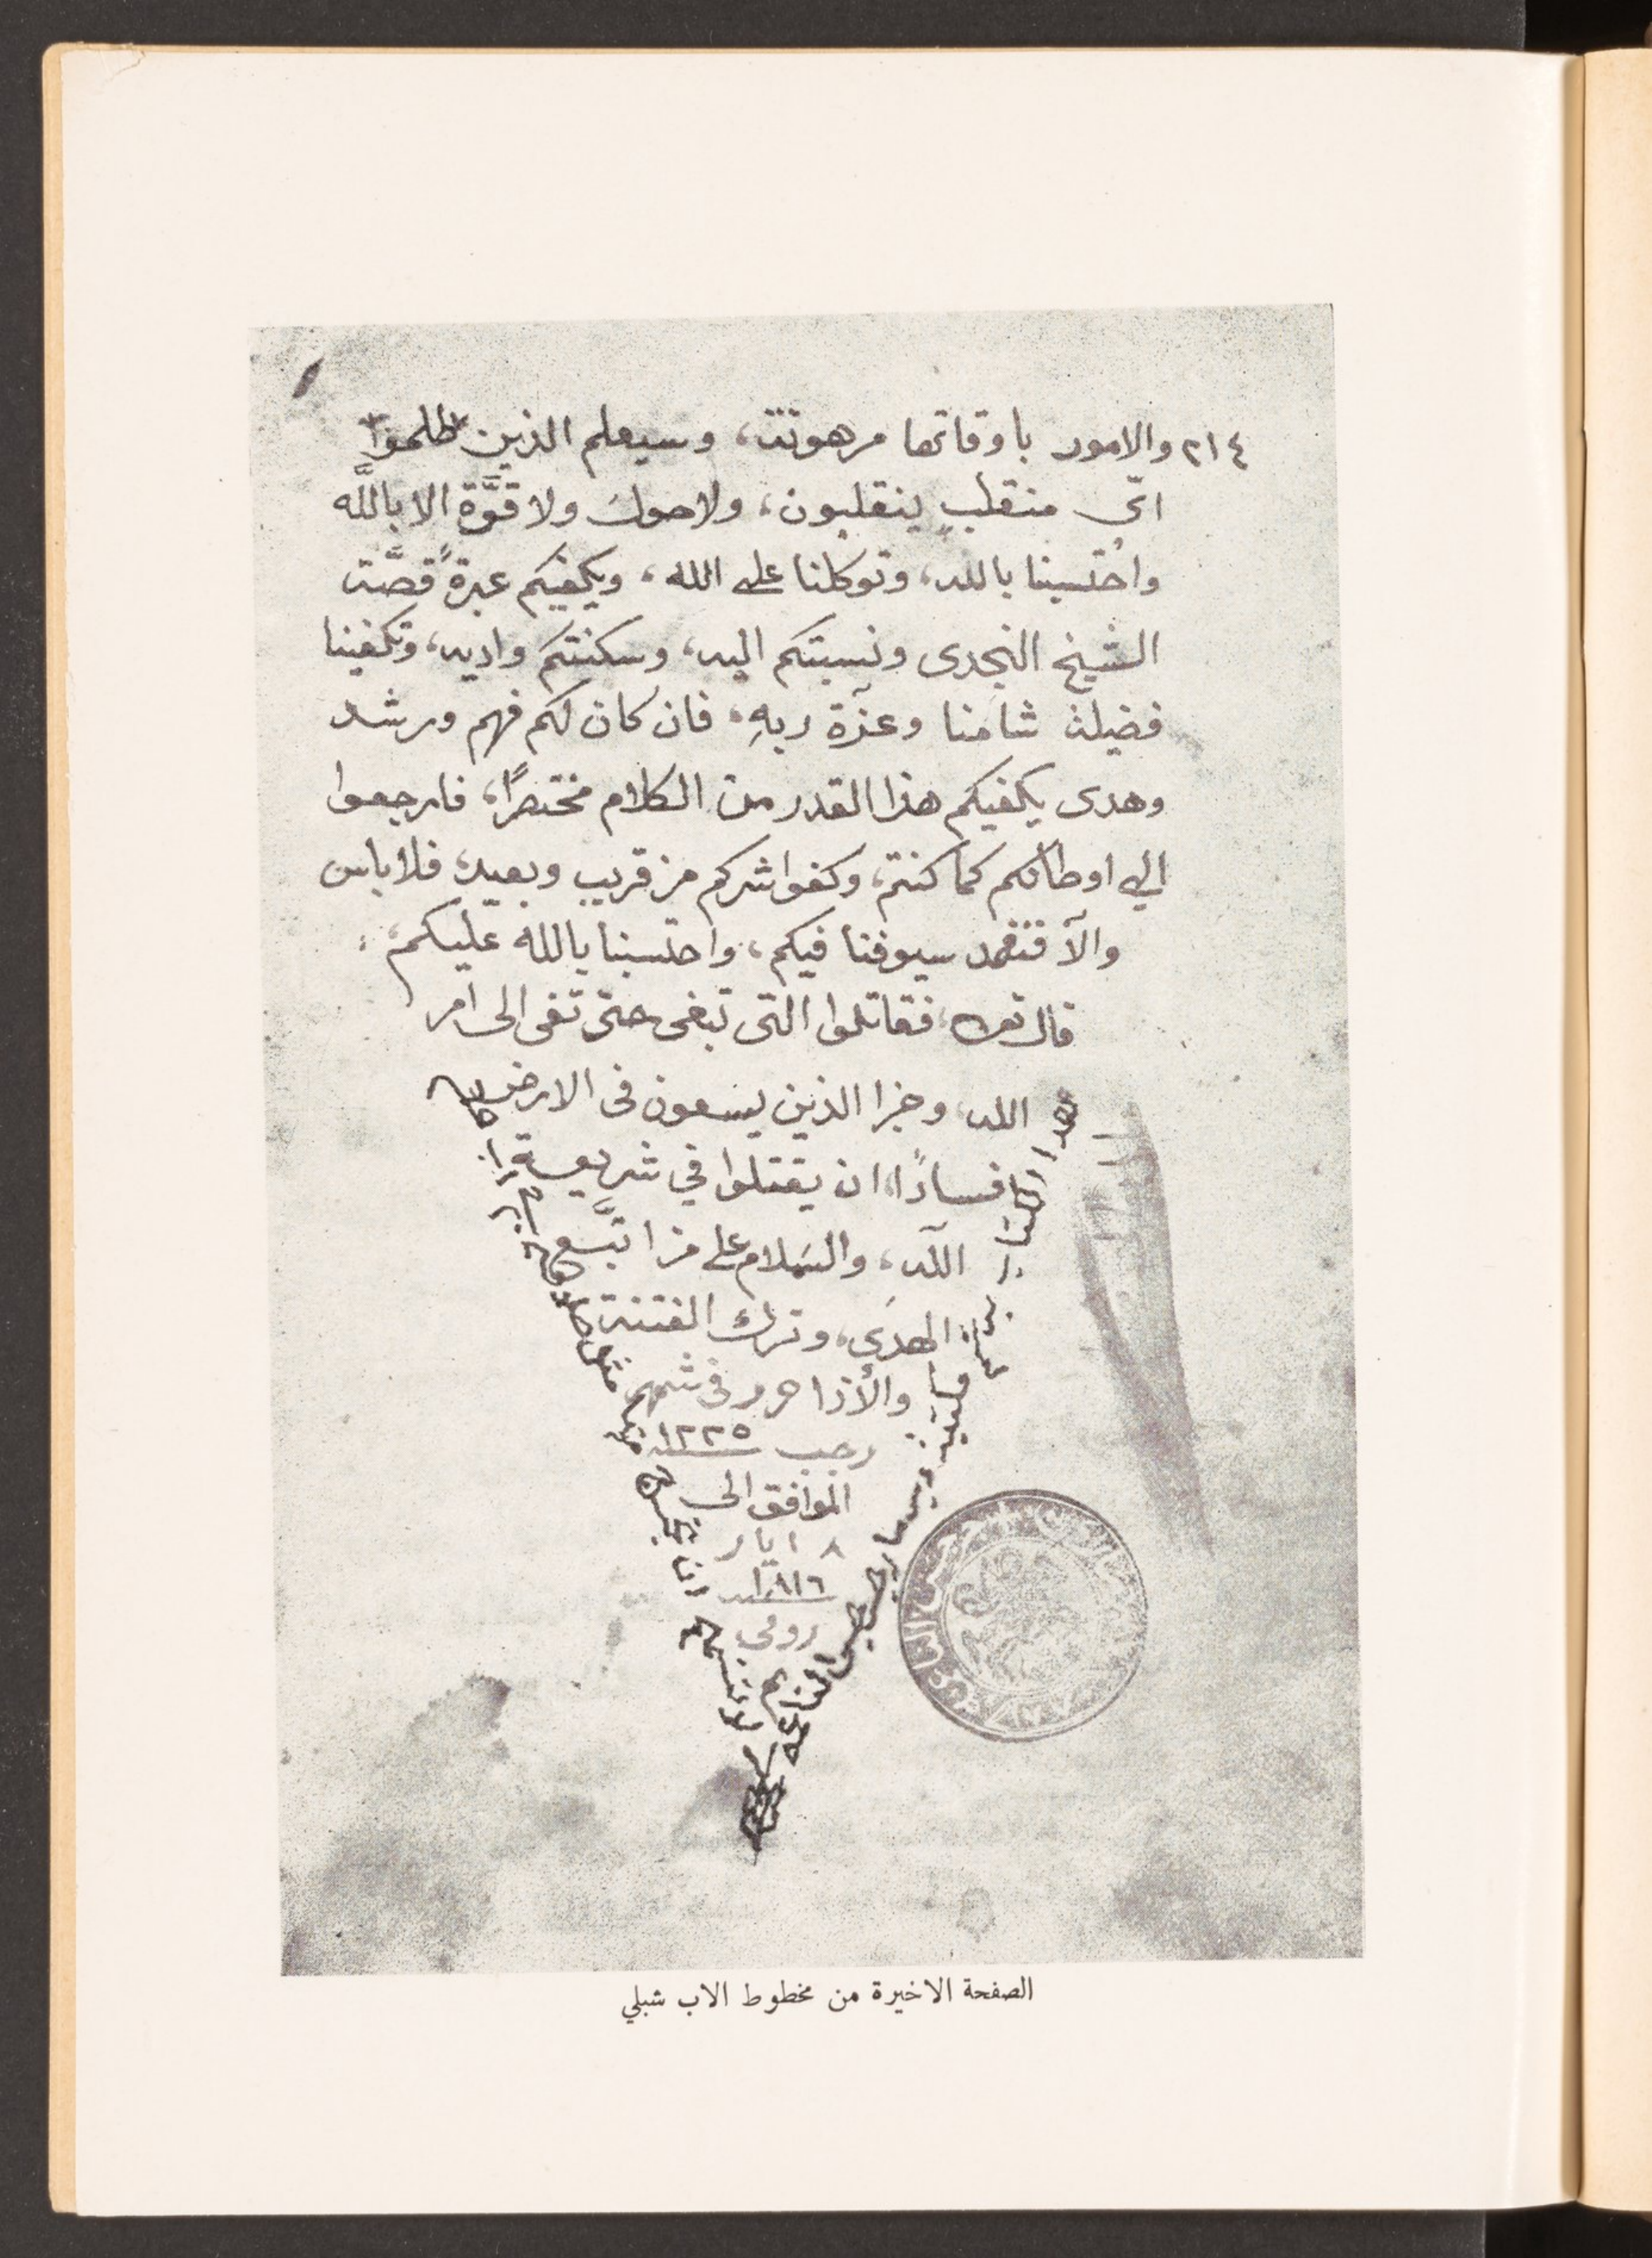 ٢١٤ والامور باوقاتها مرهونة، وسيعلم الذين ظلموا
ايّ منقلبٍ ينقلبون، ولاحول ولا قوَّة الا باللَّه
واحتسبنا بالله، وتوكلنا على الله، ويكفيكم عبرةً قصَّة
الشيخ النجدى ونسبتكم اليه، وسكنتكم واديه، وتكفينا
فضيلة شامنا وعزّة ربهِ، فان كان لكم فهم ورشد
وهدى يكفيكم هذا القدر من الكلام مختصرًا، فارجعوا
الي اوطانكم كما كنتم، وكفوا شركم من قريب وبعيد، فلا باس
والّا فتغمد سيوفنا فيكم، واحتسبنا بالله عليكم،
قال تعه، فقاتلوا التى تبغى حتى تفى الى امر
الله، وجزا الذين يسعون فى الارض
فسادًا، ان يقتلوا في شريعة
الله، والسَلام على من اتَّبع
الهدَى، وترك الفتنة
والأذا حرر فى شهر
رجب سنة ١٢٢٥
الموافق الى
٨ ايار
سنة ١٨١٦
رومى
هذا الكتاب
الصفحة الاخيرة من مخطوط الاب شبلي